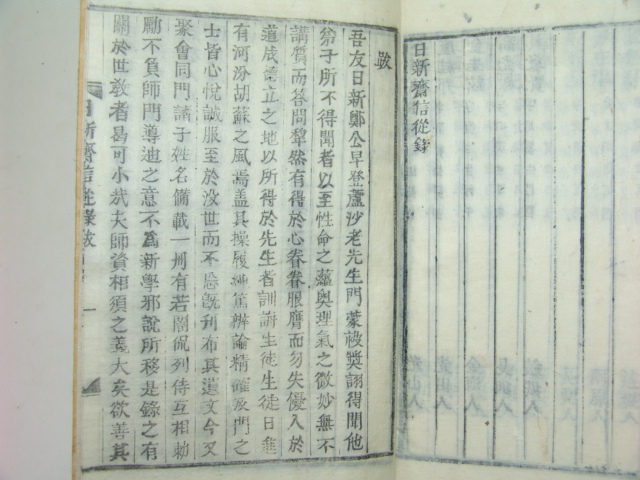 日新齋信從錄
跋
吾友日新鄭公早登蘆沙老先生門蒙被獎詡得聞他
弟子所不得聞者以至性命之蘊奧理氣之微妙無不
講質而答問犂然有得於心眷眷服膺而勿失優入於
道成德立之地以所得於先生者訓誨生徒生徒日進
有河汾胡蘇之風焉盖其操履純篤辨論精確及門之
士皆心悅誠服至於沒世而不忘旣刋布其遺文今又
聚會同門諸子姓名備載一刋有若誾侃列侍互相勅
勵不負師門導迪之意不爲新學邪說所移是錄之有
關於世敎者曷可小㢤夫師資相須之義大矣欲善其
日新齋信從錄跋
一